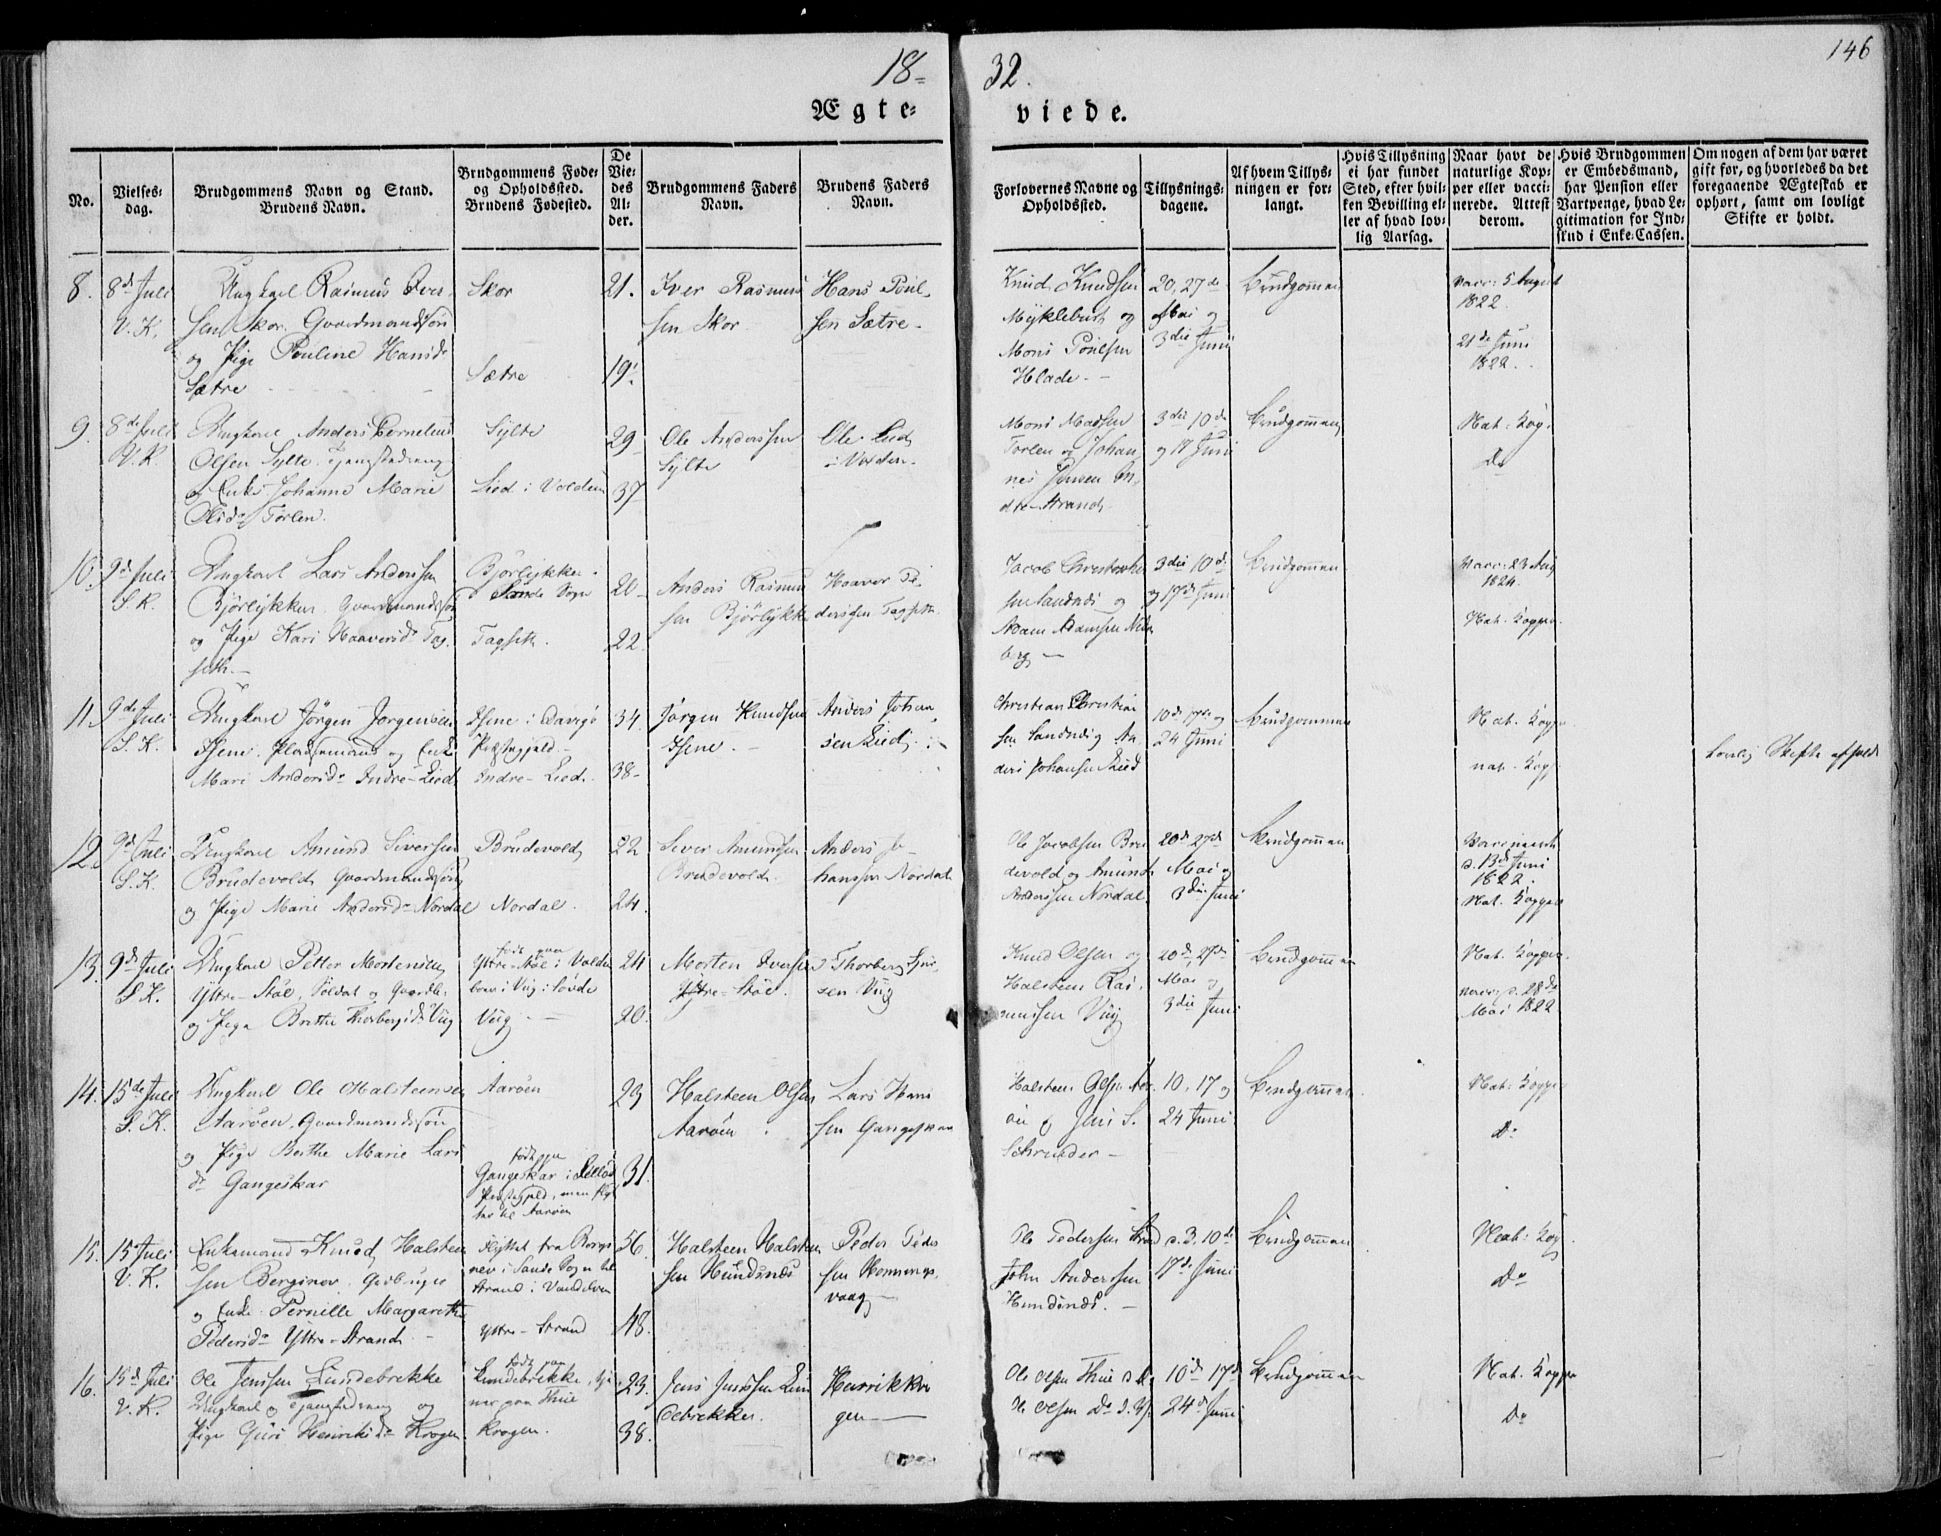 18=
32.
146
Ægte=
viede.
No.
Vielses=
dag.
Brudgommens Navn og Stand.
Brudens Navn.
Brudgommens Føde=
og Opholdssted.
Brudens Fødested.
De
Vie=
des
Al=
der.
Brudgommens Faders
Navn.
Brudens Faders
Navn.
Forlovernes Navne og
Opholdssted.
Tillysnings=
dagene.
Af hvem Tillys=
ningen er for=
langt.
Hvis Tillysning
ei har fundet
Sted, efter hvil=
ken Bevilling el=
ler af hvad lov=
lig Aarsag.
Naar havt de
naturlige Kop=
per eller vacci=
nerede. Attest
derom.
Hvis Brudgommen
er Embedsmand,
har Pension eller
Vartpenge, hvad Le=
gitimation for Ind=
skud i Enke=Cassen.
Om nogen af dem har været
gift før, og hvorledes da det
foregaaende Ægteskab er
ophørt, samt om lovligt
Skifte er holdt.
8.
8de Juli
V. K.
Ungkarl Rasmus Iver
sen Skor. Gaardmandssøn
og Pige Pouline Hansdr
Sætre
Skor
Sætre
21.
19.
Iver Rasmus
sen Skor
Hans Poul
sen Sætre
Knud Knudsen
Myklebust og
Mons Poulsen
Hlade.
20, 27de
Mai og
3die Juni
Brudgommen
vacc: 5 August
1822
21de Juni
1822.
9.
8de Juli
V. K.
Ungkarl Anders Cornelius
Olsen Sylte. Tjenstedreng
og Enke Johanne Marie
Olsdr Torlen.
Sylte
Lied i Volden
29
37
Ole Anderssen
Sylte
Ole Lied
i Volden.
Mons Madsen
Torlen og Johan
nes Jensen In
dre Strand.
3die 10de
og 17 Juni
Brudgommen
Nat: Kop.
Do
10.
9de Juli
S. K.
Ungkarl Lars Anderssen
Bjørlykken. Gaardmandssøn
og Pige Kari Haaversdr Tag
seth.
Bjørlykken
i Sande Sogn
Tagseth.
20
22.
Anders Rasmus
sen Bjørlykke
Haaver Pe
dersen Tagseth.
Jacob Christen
sen Landnæs og
Adam Adamsen Nede
berg
3die 10de
og 17de Juni
Brudgommen
vacc: 23 Aug
1824.
Nat. Kopper
11.
9de Juli
S. K.
Ungkarl Jørgen Jørgensen
Isene. Pladsemand og Enke
Mari Andersdr Indre-Lied
Isene i Davigs
Præstegjeld.
Indre-Lied.
34.
38.
Jørgen Knudsen
Isene.
Anders Johan
sen Lied.
Christian Christian
sen Landnæs og An
ders Johansen Lied
10de 17de og
24 Juni
Brudgommen
Nat. Kopper
nat. Kop.
Lovlig Skifte afholdt
12.
9de Juli
S. K.
Ungkarl Amund Siversen
Brudevold. Gaardmandssøn
og Pige Marie Andersdr Nordal
Brudevold
Nordal.
22
24.
Siver Amundsen
Brudevold.
Anders Jo
hanssen Nordal
Ole Jacobsen Bru
devold og Amund
Anderssen Nordal
20de 27de
Mai og
3die Juni
Brudgommen
Vaccineret
d. 13de Juni
1822.
Nat. Kopper
13.
9de Juli
S. K.
Ungkarl Petter Mortensen
Yttre-Støe, Soldat og Gaardb.
og Pige Berthe Thorbergsdr Viig
født paa
Yttre-Støe i Volden
boer i Viig i Søvde
Viig.
24
20.
Morten Iversen
Yttre-Støe.
Thorberg Iver
sen Viig
Knud Olsen og
Halsteen Ras
mussen Viig
20de, 27de
Mai og
3die Juni
Brudgommen
Nat. Kopper
vacc. d. 28de
Mai 1822
14.
15de Juli
S. K.
Ungkarl Ole Halsteensen
Aarøen. Gaardmandssøn
og Pige Berthe Marie Lars
dr Gangeskar
Aarøen
født paa
Gangeskar i
Præstegjeld, men flyt
tet til Aarøen
23
31.
Halsteen Olsen
Aarøen
Lars Hans
sen Gangeskar
Halsteen Olsen Aar
øen og Jens S.
Schrøder
10, 17 og
24 Juni
Brudgommen.
Nat. Kopper
Do
15.
15 Juli
V. K.
Enkemand Knud Halsteen
sen Berginæv. Gaardbruger
og Enke Pernille Margarethe
Pedersdr Yttre-Strand.
Flyttet fra Bergi
næv i Sande Sogn til
Strand i Vandelven
Yttre-Strand
56.
48.
Halsteen Halsteen
sen Hundsnæs
Peder Peder
sen Hornings
vaag
Ole Pedersen Strand
John Andersen
Hundsnæs.
d. 3. 10de
17de Juni
Brudgommen
Nat. Kop.
Do
16.
15de Juli
V. K.
Ole Jenssen Lundebrekke
Ungkarl og Tjenstedreng og
Pige Guri Henriksdr Krogen
født paa
Lundebrekke, tje
ner paa Thue
Krogen.
23.
38.
Jens Jenssen Lun
debrekke.
Henrik Kro
gen
Ole Olsen Thue d. æ.
Ole Olsen Do d. y.
10de 17de
24de Juni
Brudgommen
Nat. Kopper
Do